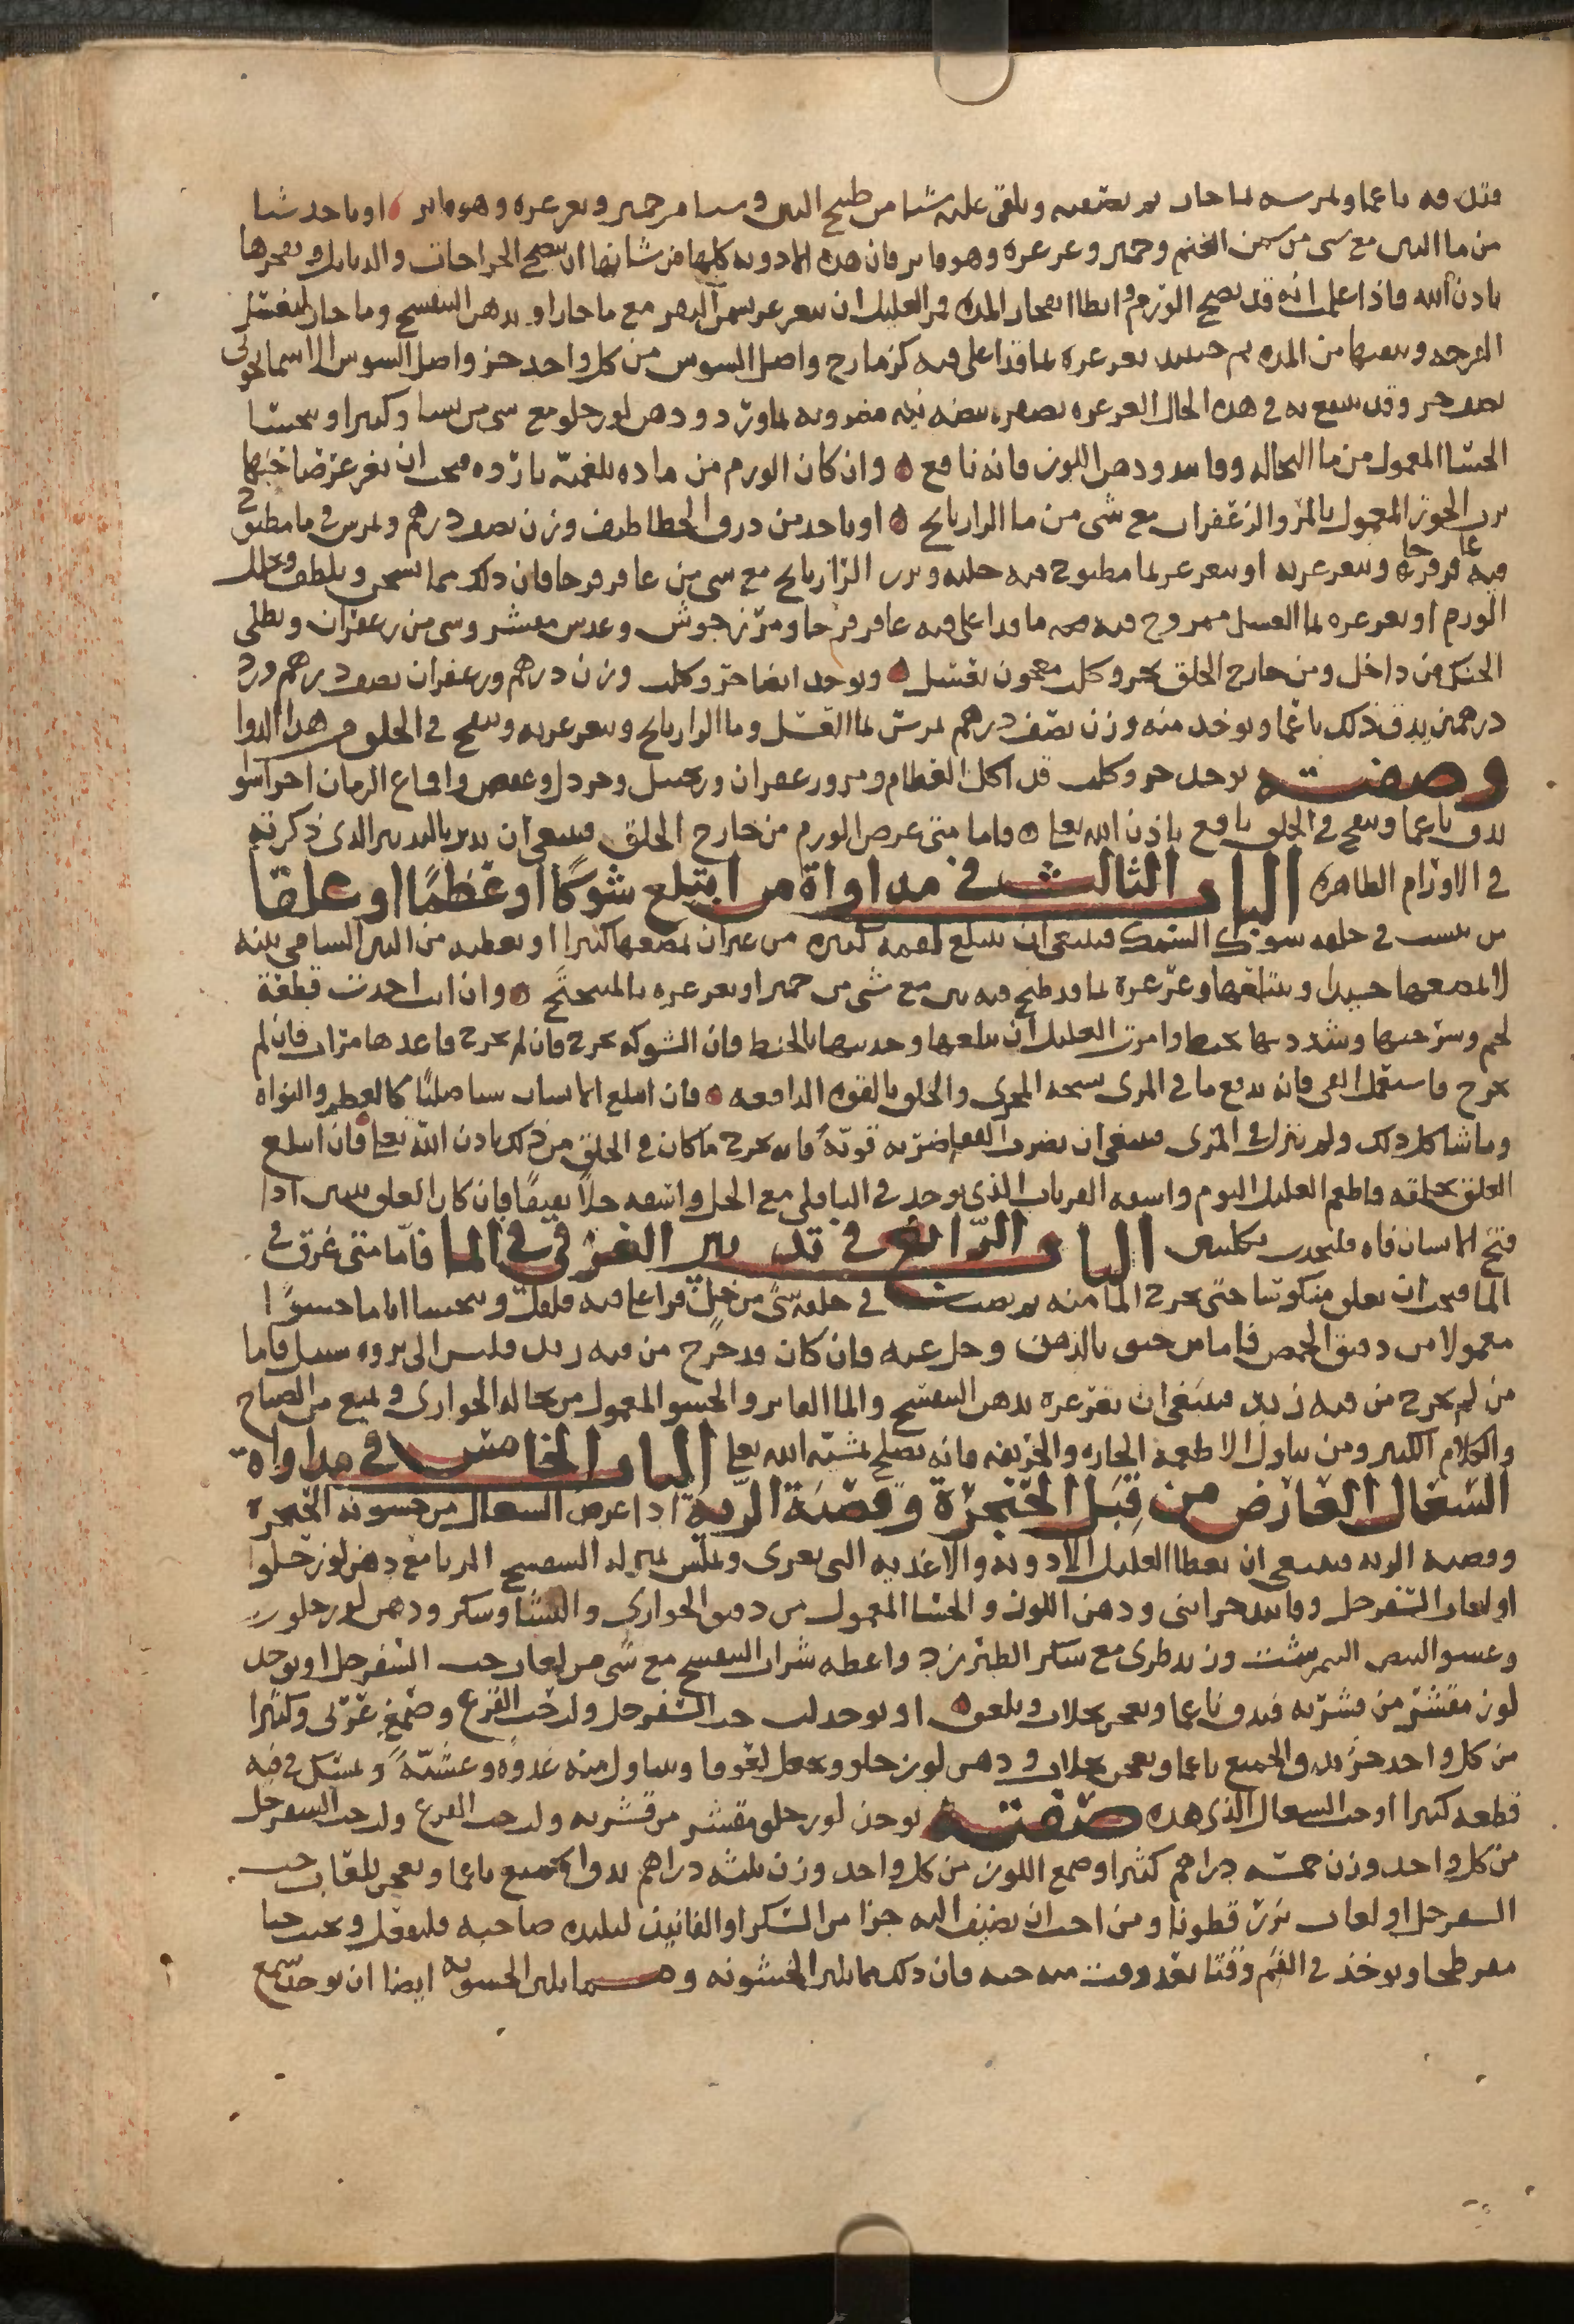 فتدق دقا ناعما ويمرس بما حار ثم يصفيه ويلقى عليه شيا من طبيخ التين وشيا من خمير ويغرغره وهو فاتر او ياخد شيا
من ما التين مع شى من سمن الغنم وخمير وغرغره وهو فاتر فان هده الادويه كلها من شانها ان تنضج الجراحات والدبابيل وتفجرها
بادن الله فاذا علمت انه قد نضج الورم وابطا انفجار المده فمر العليل ان يتغرغر بسمن البقر مع ما حار او بدهن البنفسج وما حار لتغسل
القرحه وتنقيها من المده ثم حينيد يغرغره بما قد اغلى فيه كزمازج واصل السوس من كل واحد جز واصل السوس الاسمانجونى
نصف جز وقد ينتفع به فى هده الحال الغرغره بصفره بيضه نيه مضروبه بماورد ودهن لوز حلو مع شى من نشا وكثيرا ويحتسا
الحسا المعمول من ما النخاله وفانيد ودهن اللوز فانه نافع وان كان الورم من ماده بلغميه بارده فيجب ان يغرغر صاحبها
برب الجوز المعمول بالمر والزعفران مع شى من ما الرازيانج او ياخد من درق الخطاطيف وزن نصف درهم ويمرس فى ما مطبوخ
فيه عاقرقرحا ويتغرغر به او يتغرغر بما مطبوخ فيه حلبه وبزر الرازيانج مع شى من عاقرقرحا فان دلك مما يسخن ويلطف ويحلل
الورم او يغرغره بما العسل ممزوج فيه ما قد اغلى فيه عاقرقرحا ومرزنجوش وعدس مقشر وشى من زعفران ويطلى
الحنك من داخل ومن خارج الحلق بخرو كلب معجون بعسل ويوخد ايضا خرو كلب وزن درهم وزعفران نصف درهم ورد
درهمين يدق ذلك ناعما ويوخد منه وزن نصف درهم يمرس بما العسل وما الرازيانج ويتغرغر به وينفخ فى الحلق من هدا الدوا
وصفته يوخد خرو كلب قد اكل العظام ومر وزعفران وزنجبيل وخردل وعفص واقماع الرمان اجزا سوا
يدق ناعما وينفخ فى الحلق نافع باذن الله تعا واما متى عرض الورم من خارج الحلق فينبغى ان يدبر بالتدبير الدى ذكرته
فى الاورام الظاهره الباب الثالث فى مداواة من ابتلع شوكا او عظما او علقا
من نشبت فى حلقه شوك السمك فينبغى ان يبتلع لقمه كبيره من غير ان يمضغها كثيرا او يعطيه من التين الشامى تينه
لا يمضغها جيدا ويبتلعها وغرغره بما قد طبخ فيه تين مع شى من خمير او يغرغره بالميبختج وان انت اخدت قطعة
لحم وشرحتها وشددتها بخيط وامرت العليل ان يبلعها وجدبتها بالخيط فان الشوكه تخرج فان لم تخرج فاعدها مرات فان لم
تخرج فاستعمل القى فانه يدفع ما فى المرى بسحه المجرى والحلق بالقوه الدافعه فان ابتلع انسان شيا صلبا كالعظم والنواه
وما شاكل دلك ولم ينزل فى المرى فينبغى ان يضرب القفا ضربه قويه فانه يخرج ما كان فى الحلق من ذلك بادن الله تعا فان ابتلع
العلق بحلقه فاطعم العليل الثوم واسقه الذى يوجد فى الباقلى مع الخل واسقه خلا ثقيفا فان كان العلق يتبين ادا
فتح الانسان فاه فليجدب بكلبتين الباب الرابع فى تدبير الغرقى فى الما فاما متى غرق فى
الما فيجب ان يعلق منكوسا حتى يخرج الما منه ثم يصب فى حلقه شى من خل قد اغلى فيه فلفل ويحتسا اياما حسوا
معمولا من دقيق الحمص فاما من خنق بالدهق وحل عنه فان كان قد خرج من فيه زبد فليس الى بروه سبيل فاما
من لم يخرج من فيه زبد فينبغى ان تغرغره بدهن البنفسج والما الفاتر والحسو المعمول من نخاله الحوارى ويمنع من الصياح
والكلام الكثير ومن تناول الاطعمه الحاره والحريفه فانه يصلح بمشيه الله تعا الباب الخامس فى مداواة
السعال العارض من قبل الحنجرة وقصبة الرية ادا عرض السعال من خشونه الحنجره
وقصبه الريه فينبغى ان يعطا العليل الادويه والاغديه التى تغرى وتملس بمنزله البنفسج المربا مع دهن لوز حلو
او لعاب السفرجل وفانيد خزاينى ودهن اللوز والحسا المعمول من دقيق الحوارى والنشا وسكر ودهن لوز حلو
البيض النيمرشت وزبد طرى مع سكر الطبرزد واعطه شراب البنفسج مع شى من لعاب حب السفرجل او يوخد
لوز مقشر من قشريه فيدق ناعما ويعجن بجلاب ويلعق او يوخد لب حب السفرجل ولب حب القرع وصمغ عربى وكثيرا
من كل واحد جز يدق الجميع ناعما ويعجن بجلاب ودهن لوز حلو ويجعل لعوقا ويتناول منه غدوه وعشيه ويمسك فى فيه
قطعه كثيرا او حب السعال الذى هده صفته يوخذ لوز حلو مقشر من قشريه ولب حب القرع ولب حب السفرجل
من كل واحد وزن خمسه دراهم كثيرا وصمغ اللوز من كل واحد وزن ثلثه دراهم يدق الجميع ناعما ويعجن بلعاب حب
السفرجل او لعاب بزر قطونا ومن احب ان يضيف اليه جزا من السكر او الفانيد ليلتده صاحبه فليفعل ويحبب حبا
مفرطحا ويوخذ فى الفم وقتا بعد وقت منه حبه فان دلك مما يلين الخشونه ومما يلين الخشونه ايضا ان يوخد شمع